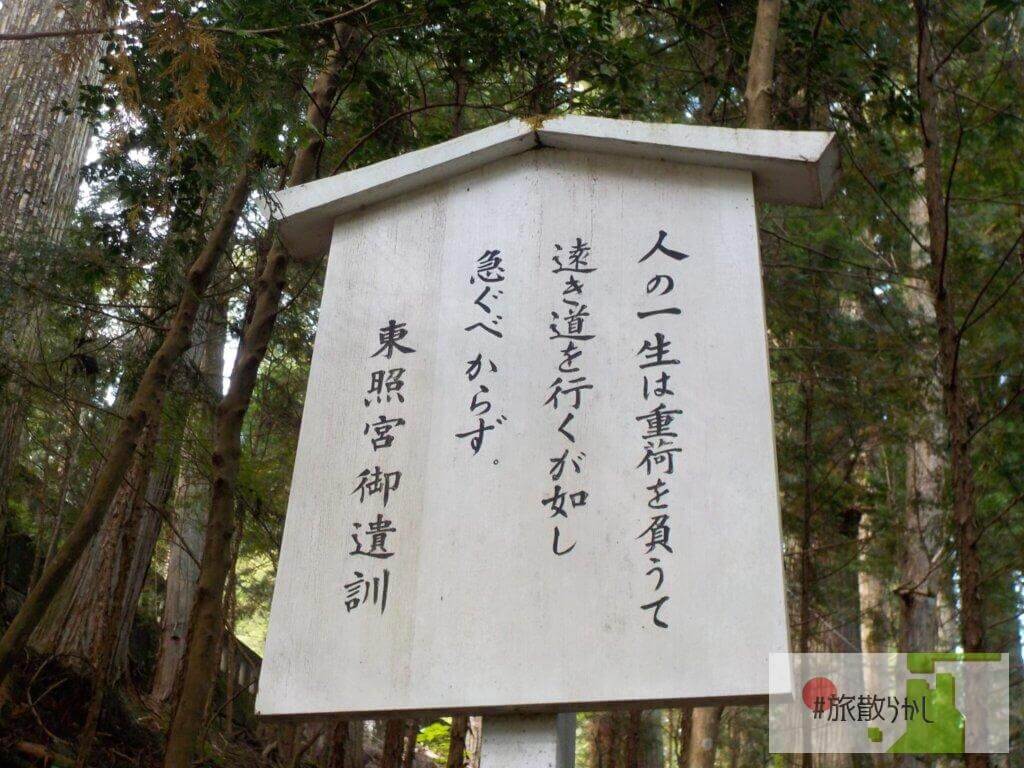 人の一生は重荷を負うて
遠き道を行くが如し
急ぐべからず。
東照宮御遺訓
#旅散らかし